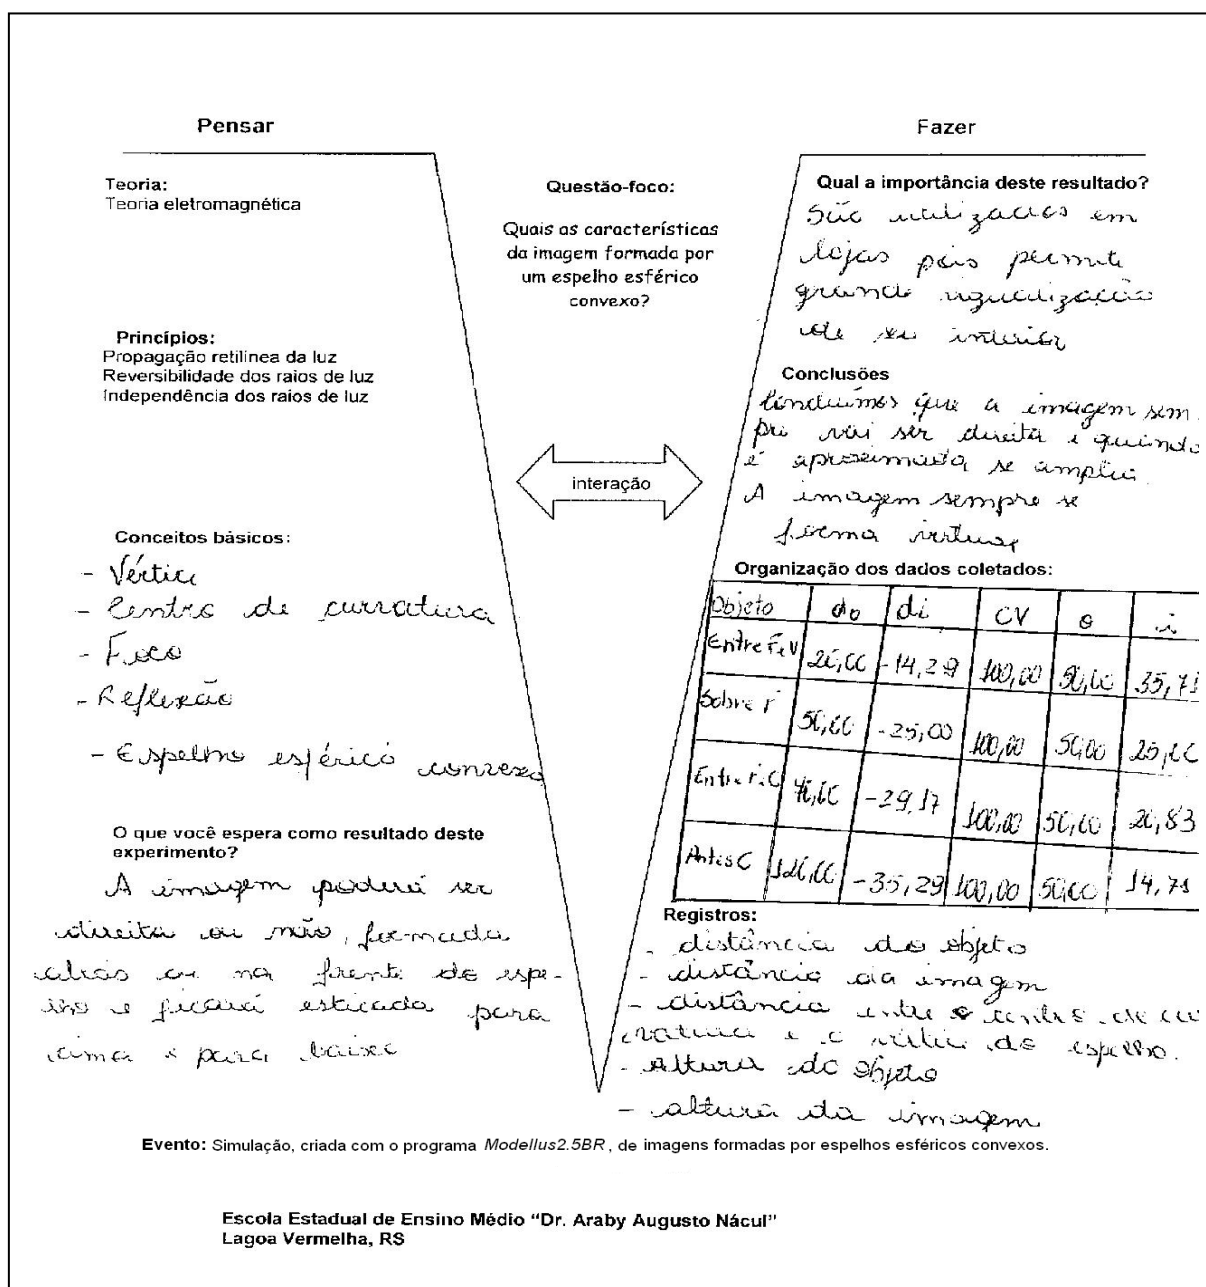 Pensar
Teoria:
Teoria eletromagnética
Princípios:
Propagação retilínea da luz
Reversibilidade dos raios de luz
Independência dos raios de luz
Conceitos básicos:
- Vértice
- Centro de curvatura
- Foco
- Reflexão
- Espelho esférico convexo
O que você espera como resultado deste
experimento?
A imagem poderá ser
direita ou não, formada
atrás ou na frente do espe-
lho e ficará esticada para
cima e para baixo
Questão-foco:
Quais as características
da imagem formada por
um espelho esférico
convexo?
interação
Fazer
Qual a importância deste resultado?
São utilizados em
lojas pois permite
grande vizualização
de seu interior
Conclusões
Concluímos que a imagem sem
pre vai ser direita e quando
é aproximada se amplia.
A imagem sempre se
forma virtual
Organização dos dados coletados:
Objeto do di CV o i
Entre F e V 20,00 -14,29 100,00 50,00 35,71
Sobre F 50,00 -25,00 100,00 50,00 25,00
Entre F e C 70,00 -29,17 100,00 50,00 20,83
Antes C 120,00 -35,29 100,00 50,00 14,71
Registros:
- distância do objeto
- distância da imagem
- distância entre o centro de cur
vatura e o vértice do espelho.
- Altura do objeto
- altura da imagem
Evento: Simulação, criada com o programa Modellus2.5BR, de imagens formadas por espelhos esféricos convexos.
Escola Estadual de Ensino Médio “Dr. Araby Augusto Nácul”
Lagoa Vermelha, RS